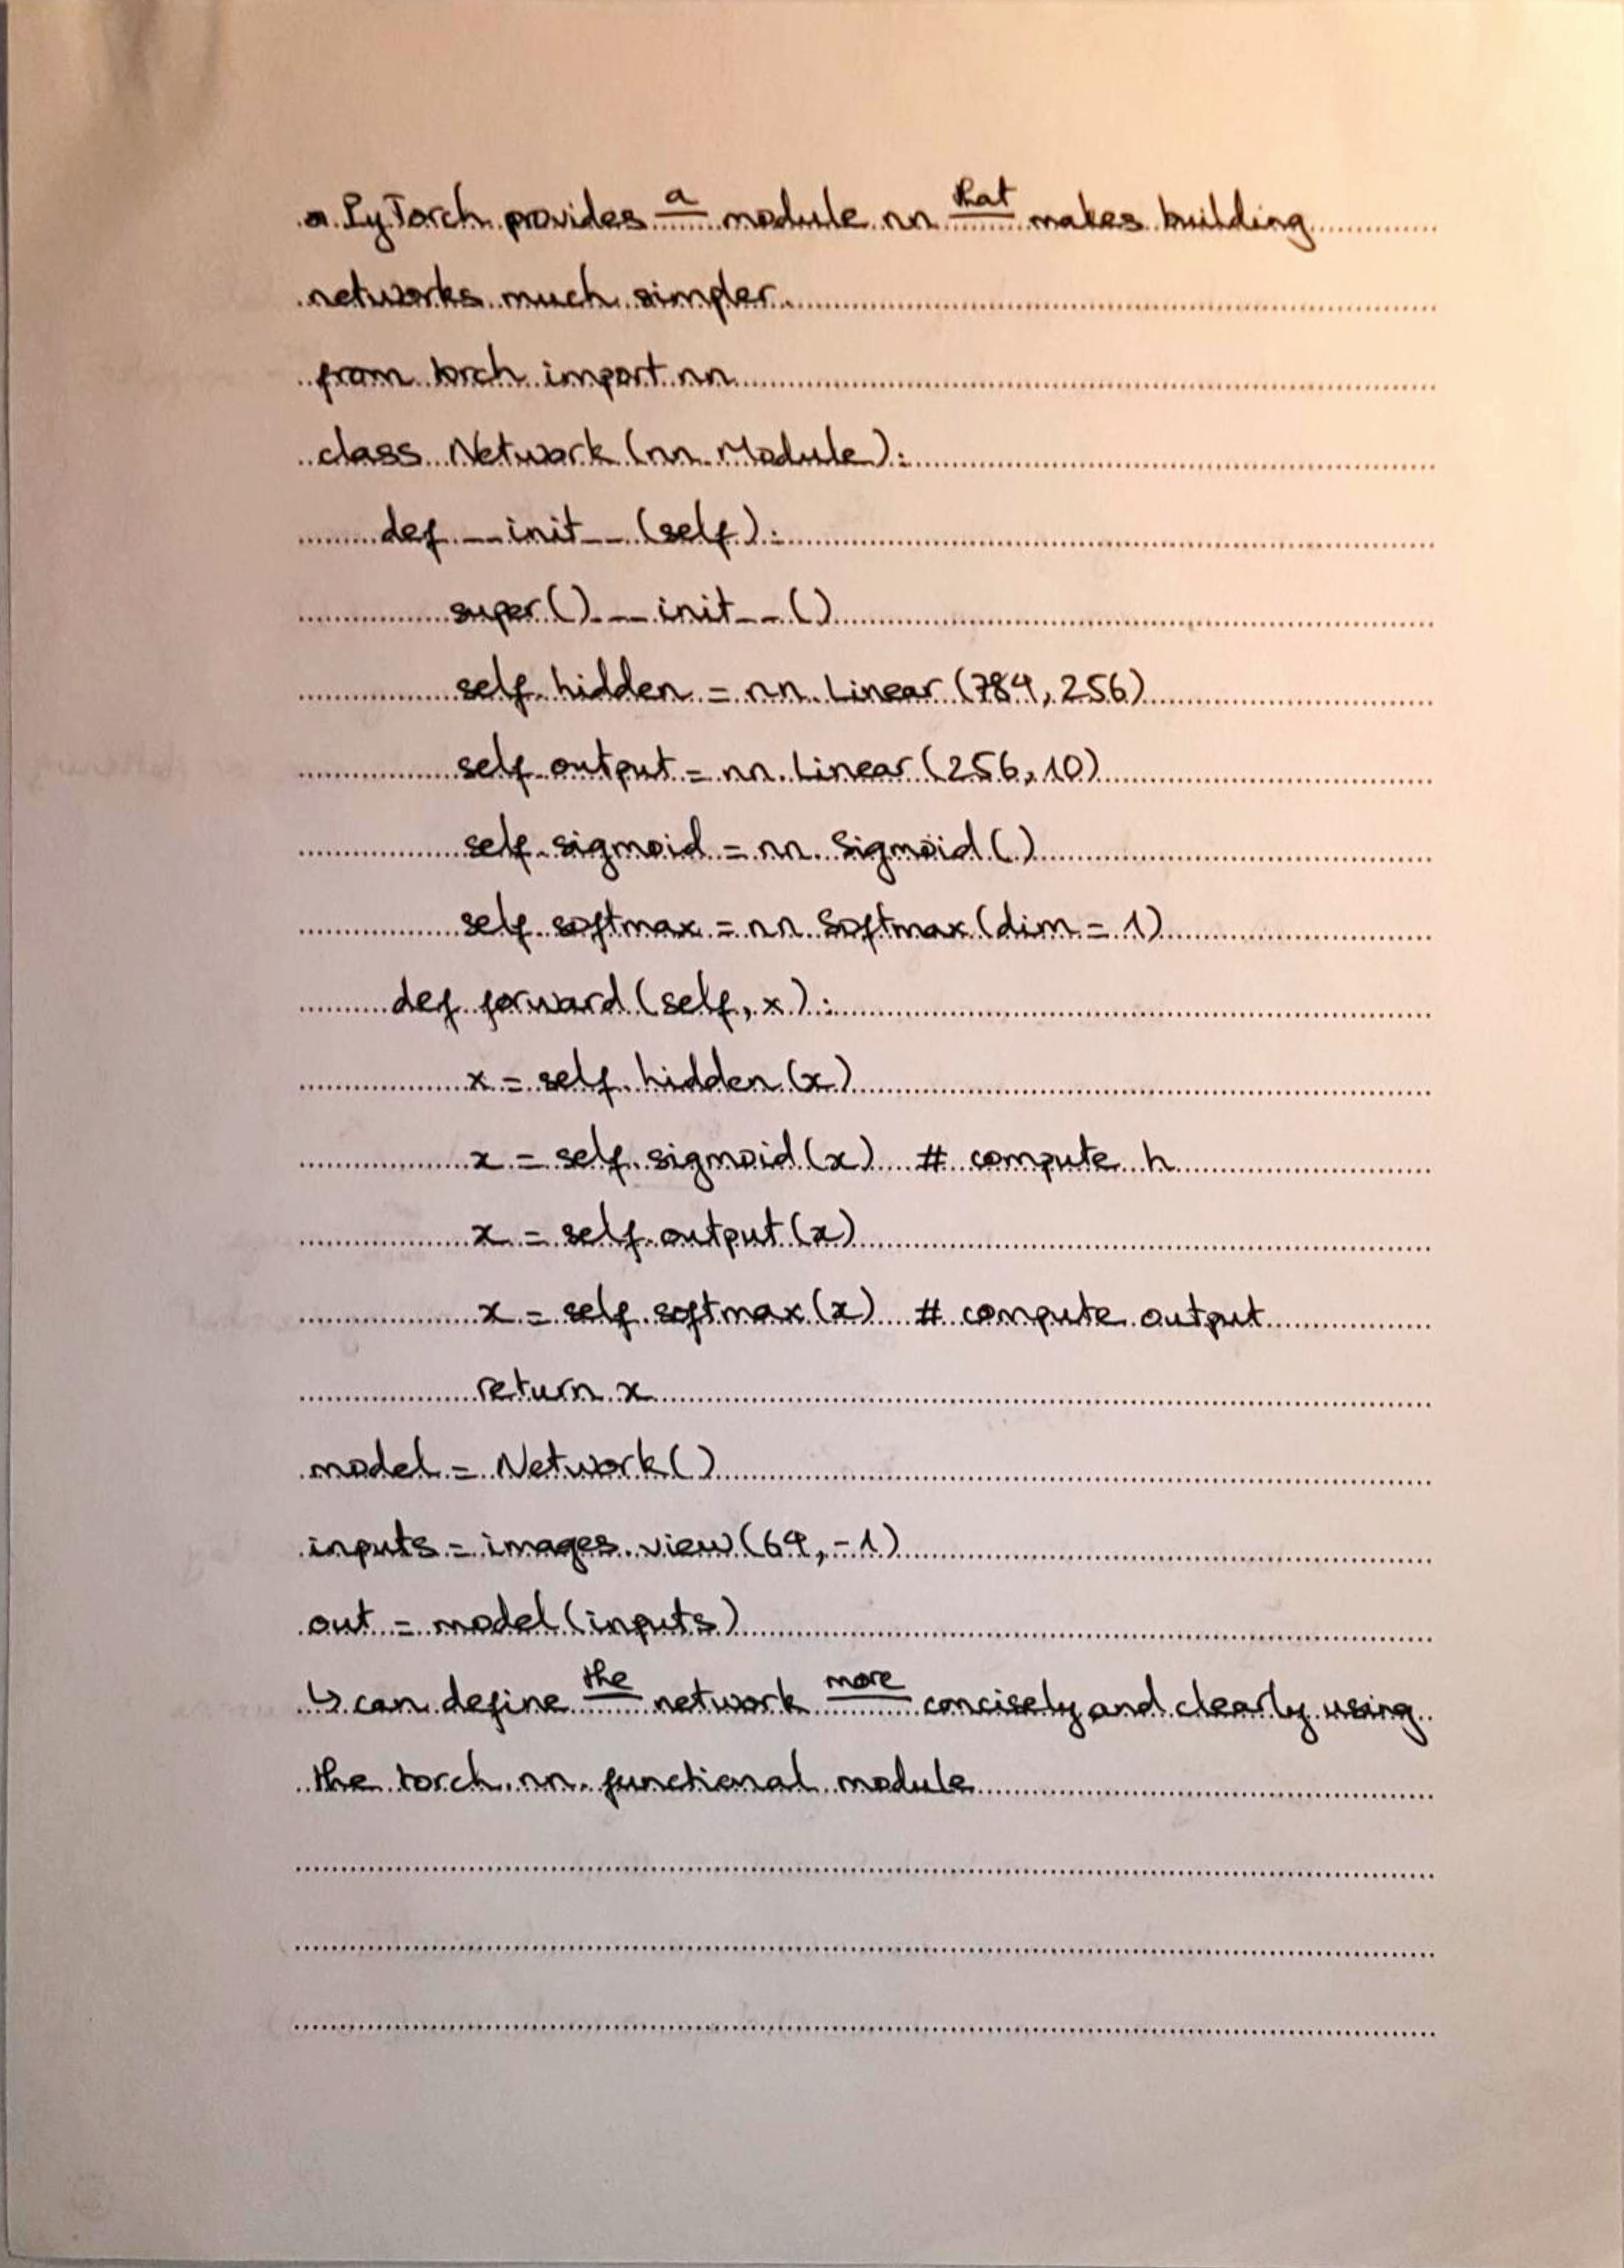 PyTorch provides a module nn that makes building
networks much simpler.
from torch import nn
class Network (nn.Module):
def __init__ (self):
super().__init__()
self.hidden = nn.Linear (784, 256)
self.output = nn.Linear (256, 10)
self.sigmoid = nn.Sigmoid()
self.softmax = nn.Softmax (dim = 1)
def forward (self, x):
x = self.hidden (x)
x = self.sigmoid (x) # compute h
x = self.output (x)
x = self.softmax (x) # compute output
return x
model = Network()
inputs = images.view (64, -1)
out = model (inputs)
↳ can define the network more concisely and clearly using
the torch.nn.functional module